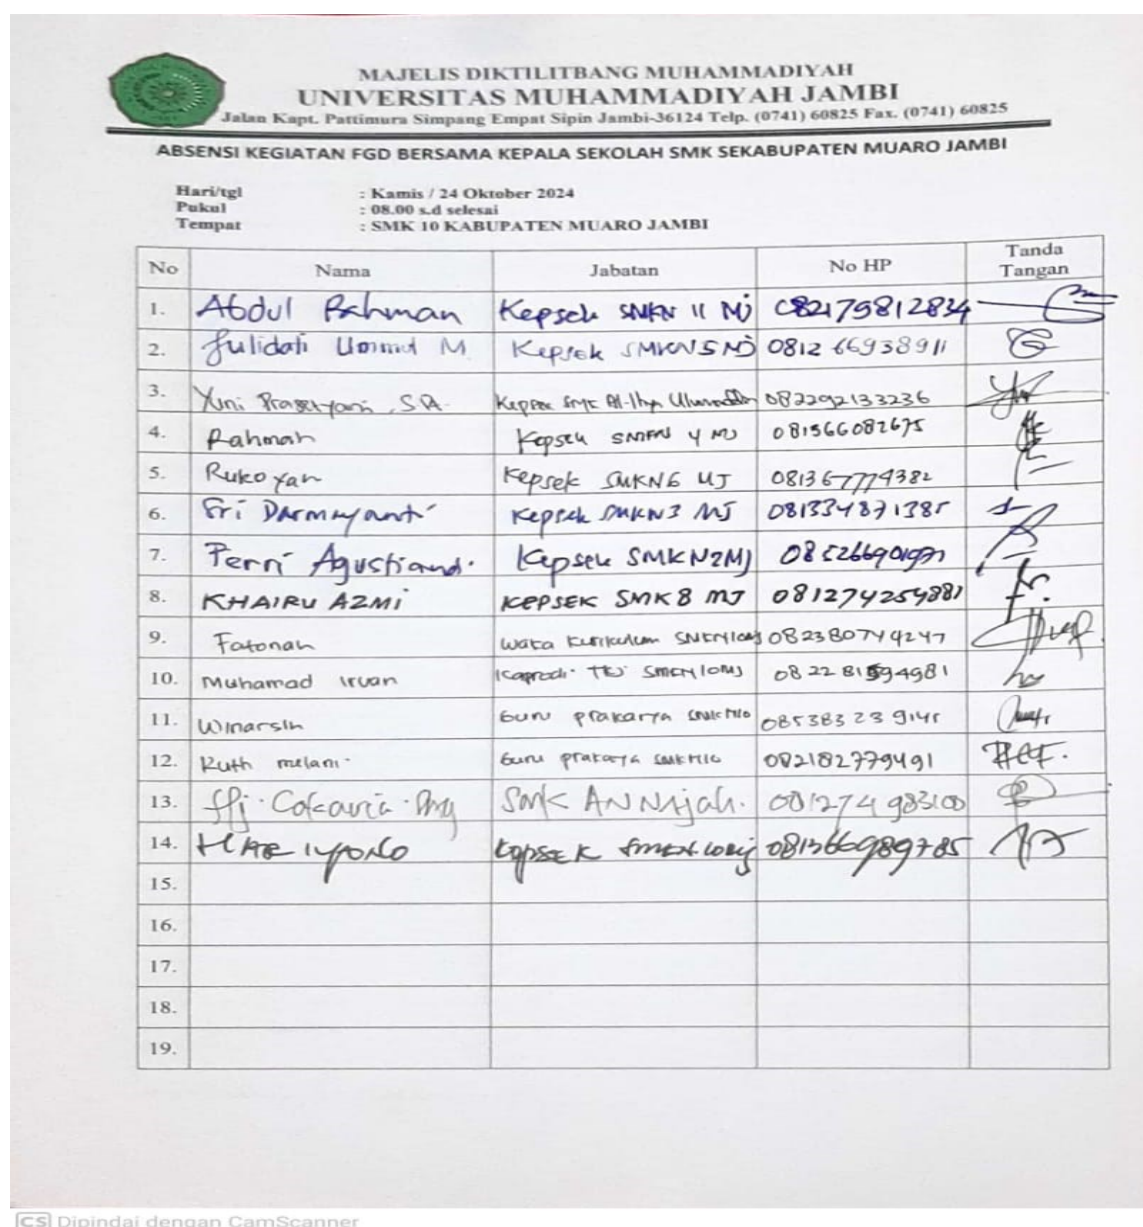 MAJELIS DIKTILITBANG MUHAMMADIYAH
UNIVERSITAS MUHAMMADIYAH JAMBI
Jalan Kapt. Pattimura Simpang Empat Sipin Jambi-36124 Telp. (0741) 60825 Fax. (0741) 60825
ABSENSI KEGIATAN FGD BERSAMA KEPALA SEKOLAH SMK SEKABUPATEN MUARO JAMBI
Hari/tgl : Kamis / 24 Oktober 2024
Pukul : 08.00 s.d selesai
Tempat : SMK 10 KABUPATEN MUARO JAMBI
No Nama Jabatan No HP Tanda Tangan
1. Abdul Rahman Kepsek SMKN 11 MJ 082179812834
2. Ummul M. Kepsek SMKN 5 MJ 0812 66938911
3. Yuni Prasetyani, S.A. Kepsek SMK Al-Ihya 082292133236
4. Rahmah Kepsek SMKN 4 MJ 081366082675
5. Rukoyah Kepsek SMKN6 MJ 081367774382
6. Sri Darmayanti Kepsek SMKN3 MJ 081334871385
7. Ferri Agustiand. Kepsek SMKN2MJ
8. KHAIRU AZMI KEPSEK SMK 8 MJ 081274254881
9. Fatonah Waka Kurikulum 082380744247
10. Muhamad Irvan Kaprodi 08 22 81594981
11. Winarsih Guru prakarya 085383239145
12. Ruth melani. Guru prakarya 082182779491
13. SMK ANNAjah. 081274983100
14. HARIYONO Kepsek 081366989785
15.
16.
17.
18.
19.
CS Dipindai dengan CamScanner